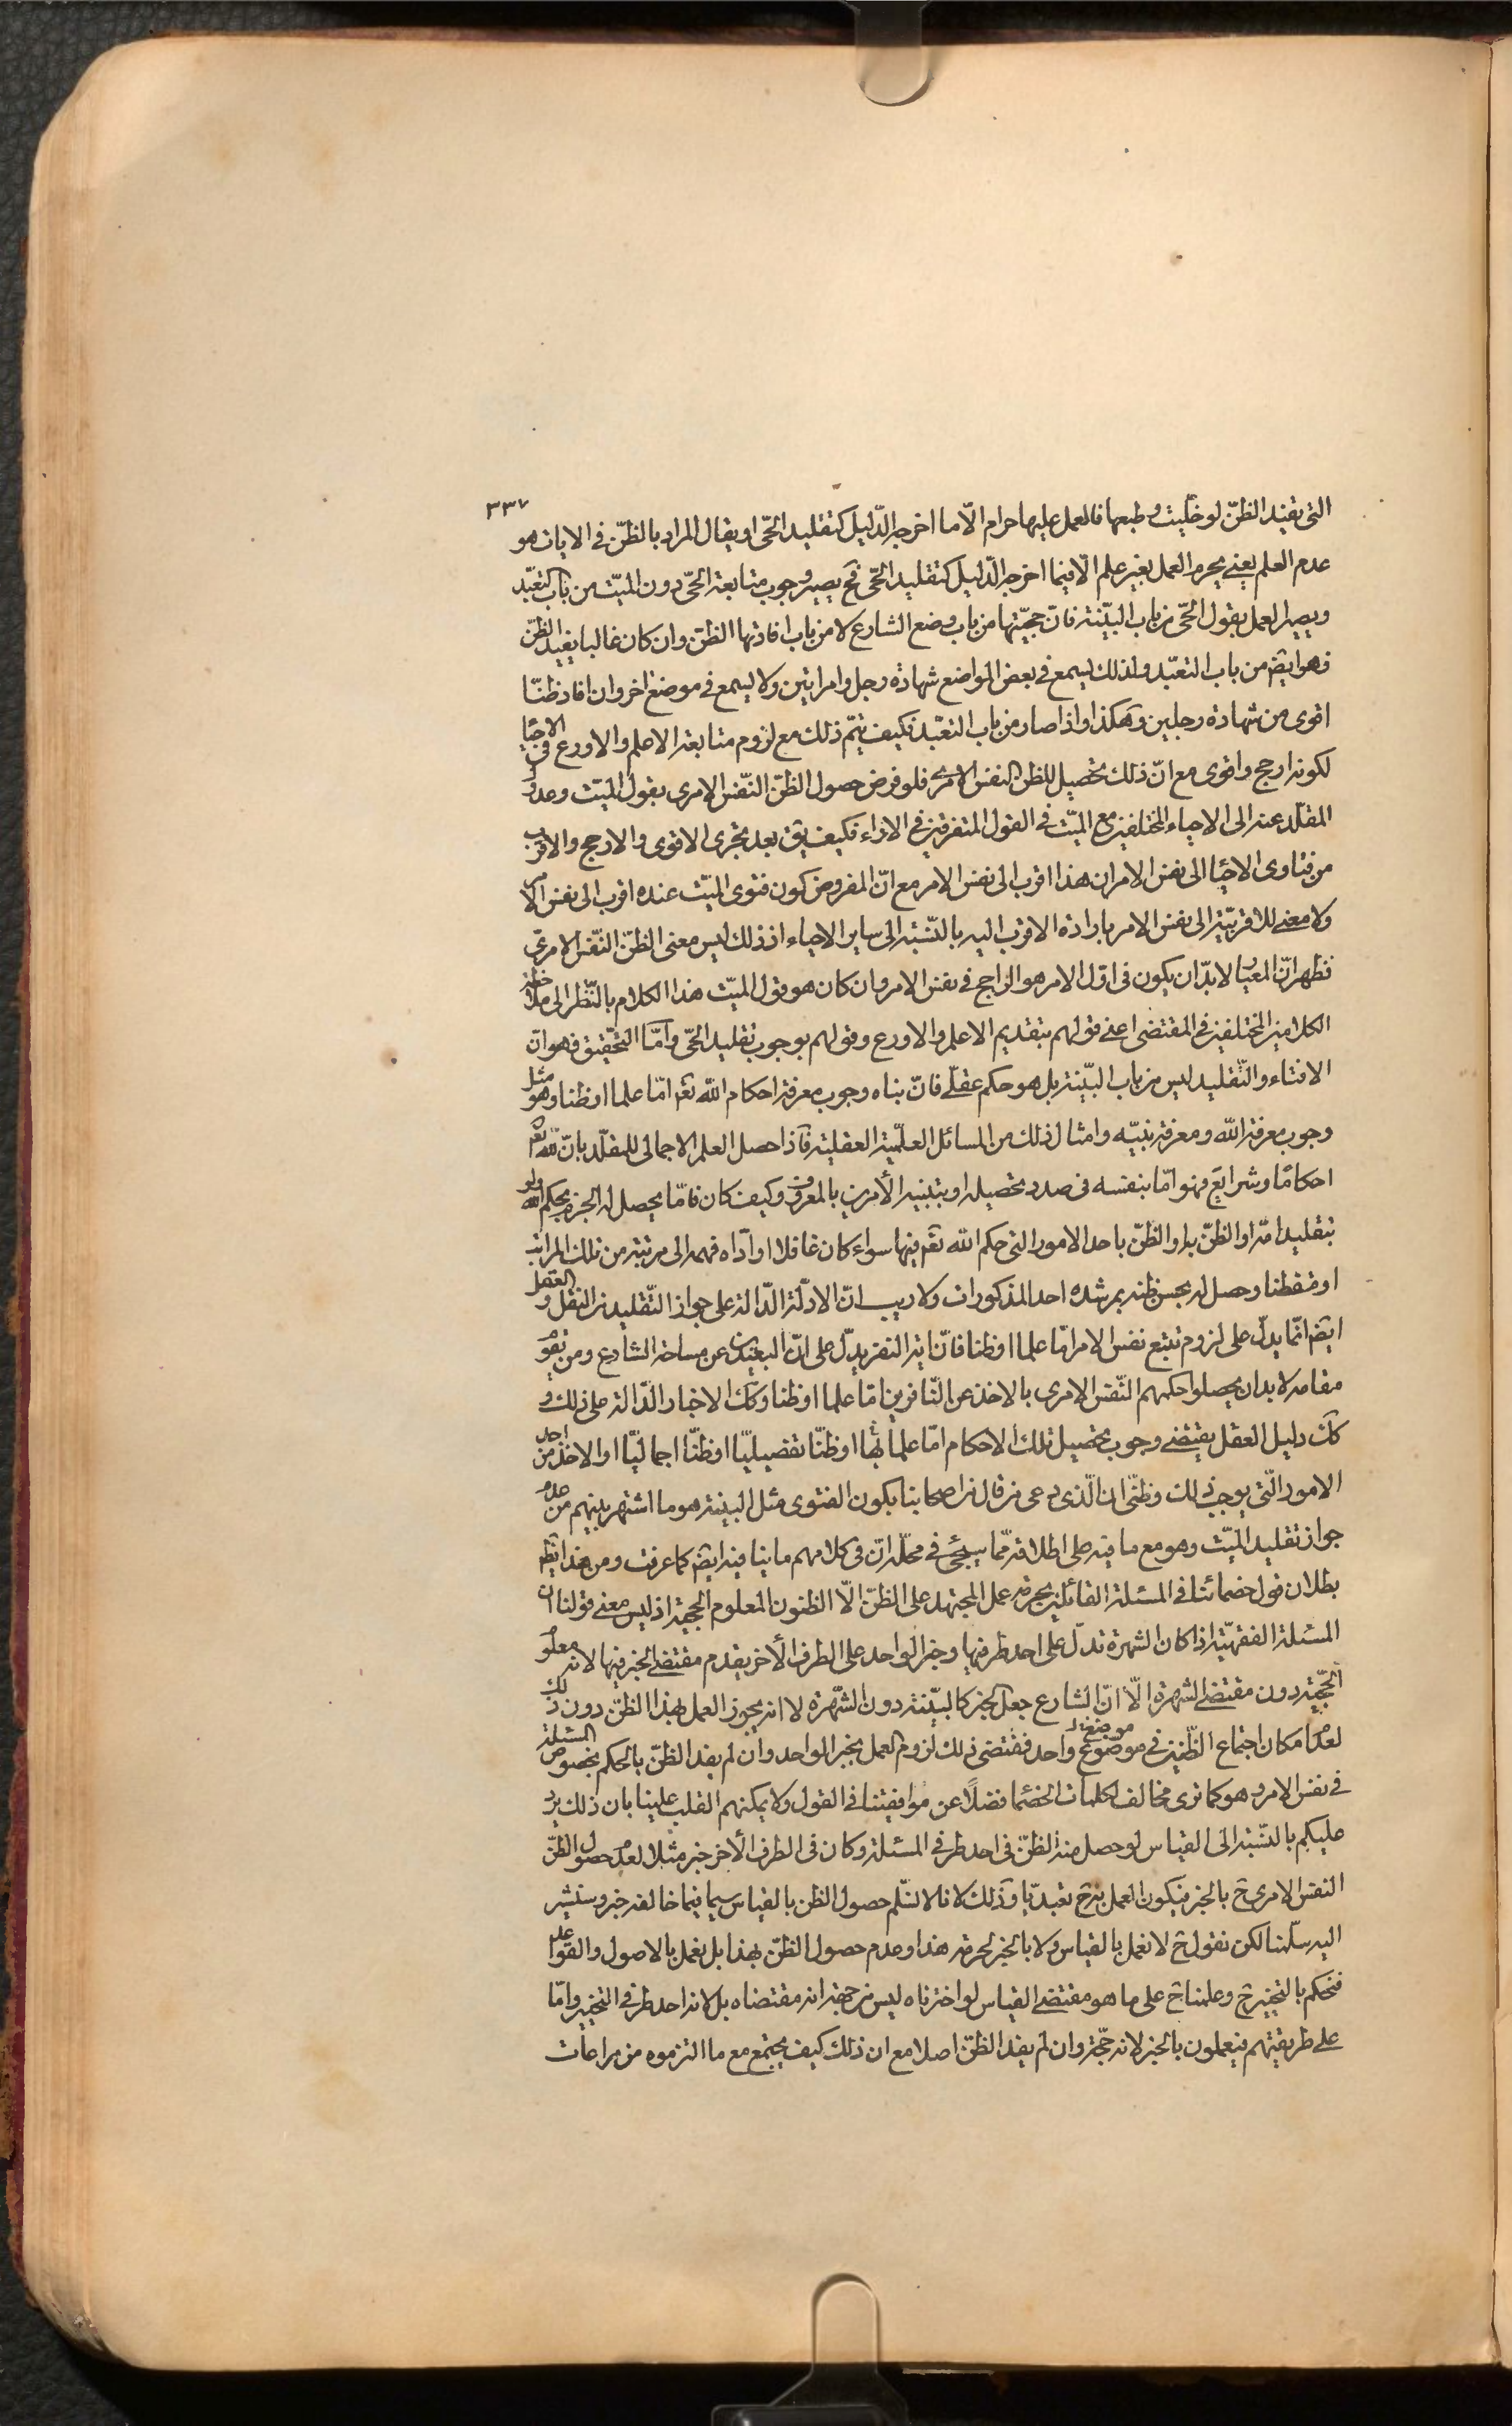 ٣٣٧
التى تفيد الظنّ لو خلّيت وطبعها فالعمل عليها حرام الّا ما اخرجه الدّليل كتقليد الحّى او يقال المراد بالظنّ فى الايات هو
عدم العلم يعنے يحرم العمل بغير علم الّا فيما اخرجه الدّليل كتقليد الحّى فح يصير وجوب متابعة الحّى دون الميّت من باب التعبّد
ويصير العمل بقول الحّى من باب البيّنة فانّ حجيّتها من باب وضع الشارع لا من باب افادتها الظنّ وان كان غالبا يفيد الظنّ
فهو ايضً من باب التعبّد ولذلك يسمع فى بعض المواضع شهادة رجل وامراتين ولا يسمع فى موضع اخر وان افاد ظنّا
اقوى من شهادة رجلين وهكذا واذا صار من باب التعبّد فكيف يتمّ ذلك مع لزوم متابعة الاعلم والاورع فى الاحيا
لكونه ارجح واقوى مع انّ ذلك تحصيل للظن النفس الامرے فلو فرض حصول الظنّ النّفس الامرى بقول الميّت وعدول
المقلّد عنه الى الاحياء المختلفين مع الميّت فى القول المتفرقين فى الاراء فكيف يق بعد تحرى الاقوى والارجح والاقرب
من فتاوى الاحيا الى نفس الامر ان هذا اقرب الى نفس الامر مع انّ المفروض كون فتوى الميّت عنده اقرب الى نفس الامر
ولا معنے للاقربيّة الى نفس الامر بارادة الاقرب اليه بالنّسبة الى ساير الاحياء اذ ذلك ليس معنى الظنّ النّفس الامرى
فظهر انّ المعيار لا بدّ ان يكون فى اوّل الامر هو الراجح فى نفس الامر وان كان هو قول الميّت هذا الكلام بالنّظر الى ملاحظة
الكلامين المختلفين فى المقتضى اعنے قولهم بتقديم الاعلم والاورع وقولهم بوجوب تقليد الحّى وامّا التّحقيق فهو انّ
الافتاء والتّقليد ليس من باب البيّنة بل هو حكم عقلّے فانّ بناه وجوب معرفة احكام الله تعم امّا علما او ظنا وهو مثل
وجوب معرفة الله ومعرفة نبيّه وامثال ذلك من المسائل العلميّة العقلية فاذا حصل العلم الاجمالى للمقلّد بانّ لله تعم
احكامًا وشرايع فهو امّا بنفسه فى صدد تحصيله او بتنبيه الأمرين بالمعروف وكيف كان فامّا يحصل له الجزم بحكم الله ولو
بتقليد امّه او الظنّ به او الظنّ باحد الامور التى حكم الله تعم فيها سواء كان غافلا او اداه فهمه الى مرتبة من تلك المراتب
او متفطنا وحصل له بحسن ظنه بمرشده احد المذكورات ولا ريب انّ الادلّة الدّالة على جواز التّقليد من النقل والعقل
ايضً انّما يدلّ على لزوم تتبع نفس الامر امّا علما او ظنا فانّ اية النفر يدلّ على انّ البعيدين عن مساحة الشارع ومن يقوم
مقامه لا بد ان يحصلوا حكمهم النّفس الامرى بالاخذ عن النّافرين امّا علما او ظنا وكك الاخبار الدّالة على ذلك و
كك دليل العقل يقتضے وجوب تحصيل تلك الاحكام امّا علما بها او ظنّا تفصيليّا او ظنّا اجماليّا او الاخذ من احد
الامور الّتى يوجب ذلك وظنّى ان الّذى دعى من قال من اصحابنا بكون الفتوى مثل البينة هو ما اشتهر بينهم من عدم
جواز تقليد الميّت وهو مع ما فيه على اطلاقه ممّا سيجئ فى محلّه انّ فى كلامهم ما ينافيه ايضً كما عرفت ومن هذا يظهر
بطلان قول خصمائنا فى المسئلة القائلين بحرمة عمل المجتهد على الظنّ الّا الظنون المعلوم الحجية اذ ليس معنے قولنا ان
المسئلة الفقهيّة اذا كان الشهرة تدلّ على احد طرفيها وخبر الواحد على الطرف الأخر يقدم مقتضے الخبر فيها لانه معلوم
الحجّية دون مقتضے الشهرة الّا انّ الشارع جعل الخبر كالبيّنة دون الشّهرة لا انه يجوز العمل بهذا الظنّ دون ذلك
لعدم امكان اجتماع الظّنين فى موضوع واحد فمقتضى ذلك لزوم العمل بخبر الواحد وان لم يفد الظنّ بالحكم بخصوص المسئلة
فى نفس الامر وهو كما ترى مخالف لكلمات الخصما فضلًا عن موافقتنا فى القول ولا يمكنهم القلب علينا بان ذلك يرد
عليكم بالنّسبة الى القياس لو حصل منه الظنّ فى احد طرفى المسئلة وكان فى الطرف الأخر خبر مثلا لعدم حصول الظنّ
النفس الامرى ح بالخبر فيكون العمل به ح تعبديّا وذلك لانا لا نسّلم حصول الظن بالقياس سيما فيما خالفه خبر وسنشير
اليه سلّمنا لكن نقول ح لا نعمل بالقياس ولا بالخبر لحرمة هذا وعدم حصول الظنّ بهذا بل نعمل بالاصول والقواعد
فنحكم بالتخيير ح وعلمنا ح على ما هو مقتضے القياس لو اخترناه ليس من جهة انه مقتضاه بل لانه احد طرفى التخيير وامّا
على طريقتهم فيعملون بالخبر لانه حجّة وان لم يفد الظنّ اصلا مع ان ذلك كيف يجتمع مع ما التزموه من مراعات